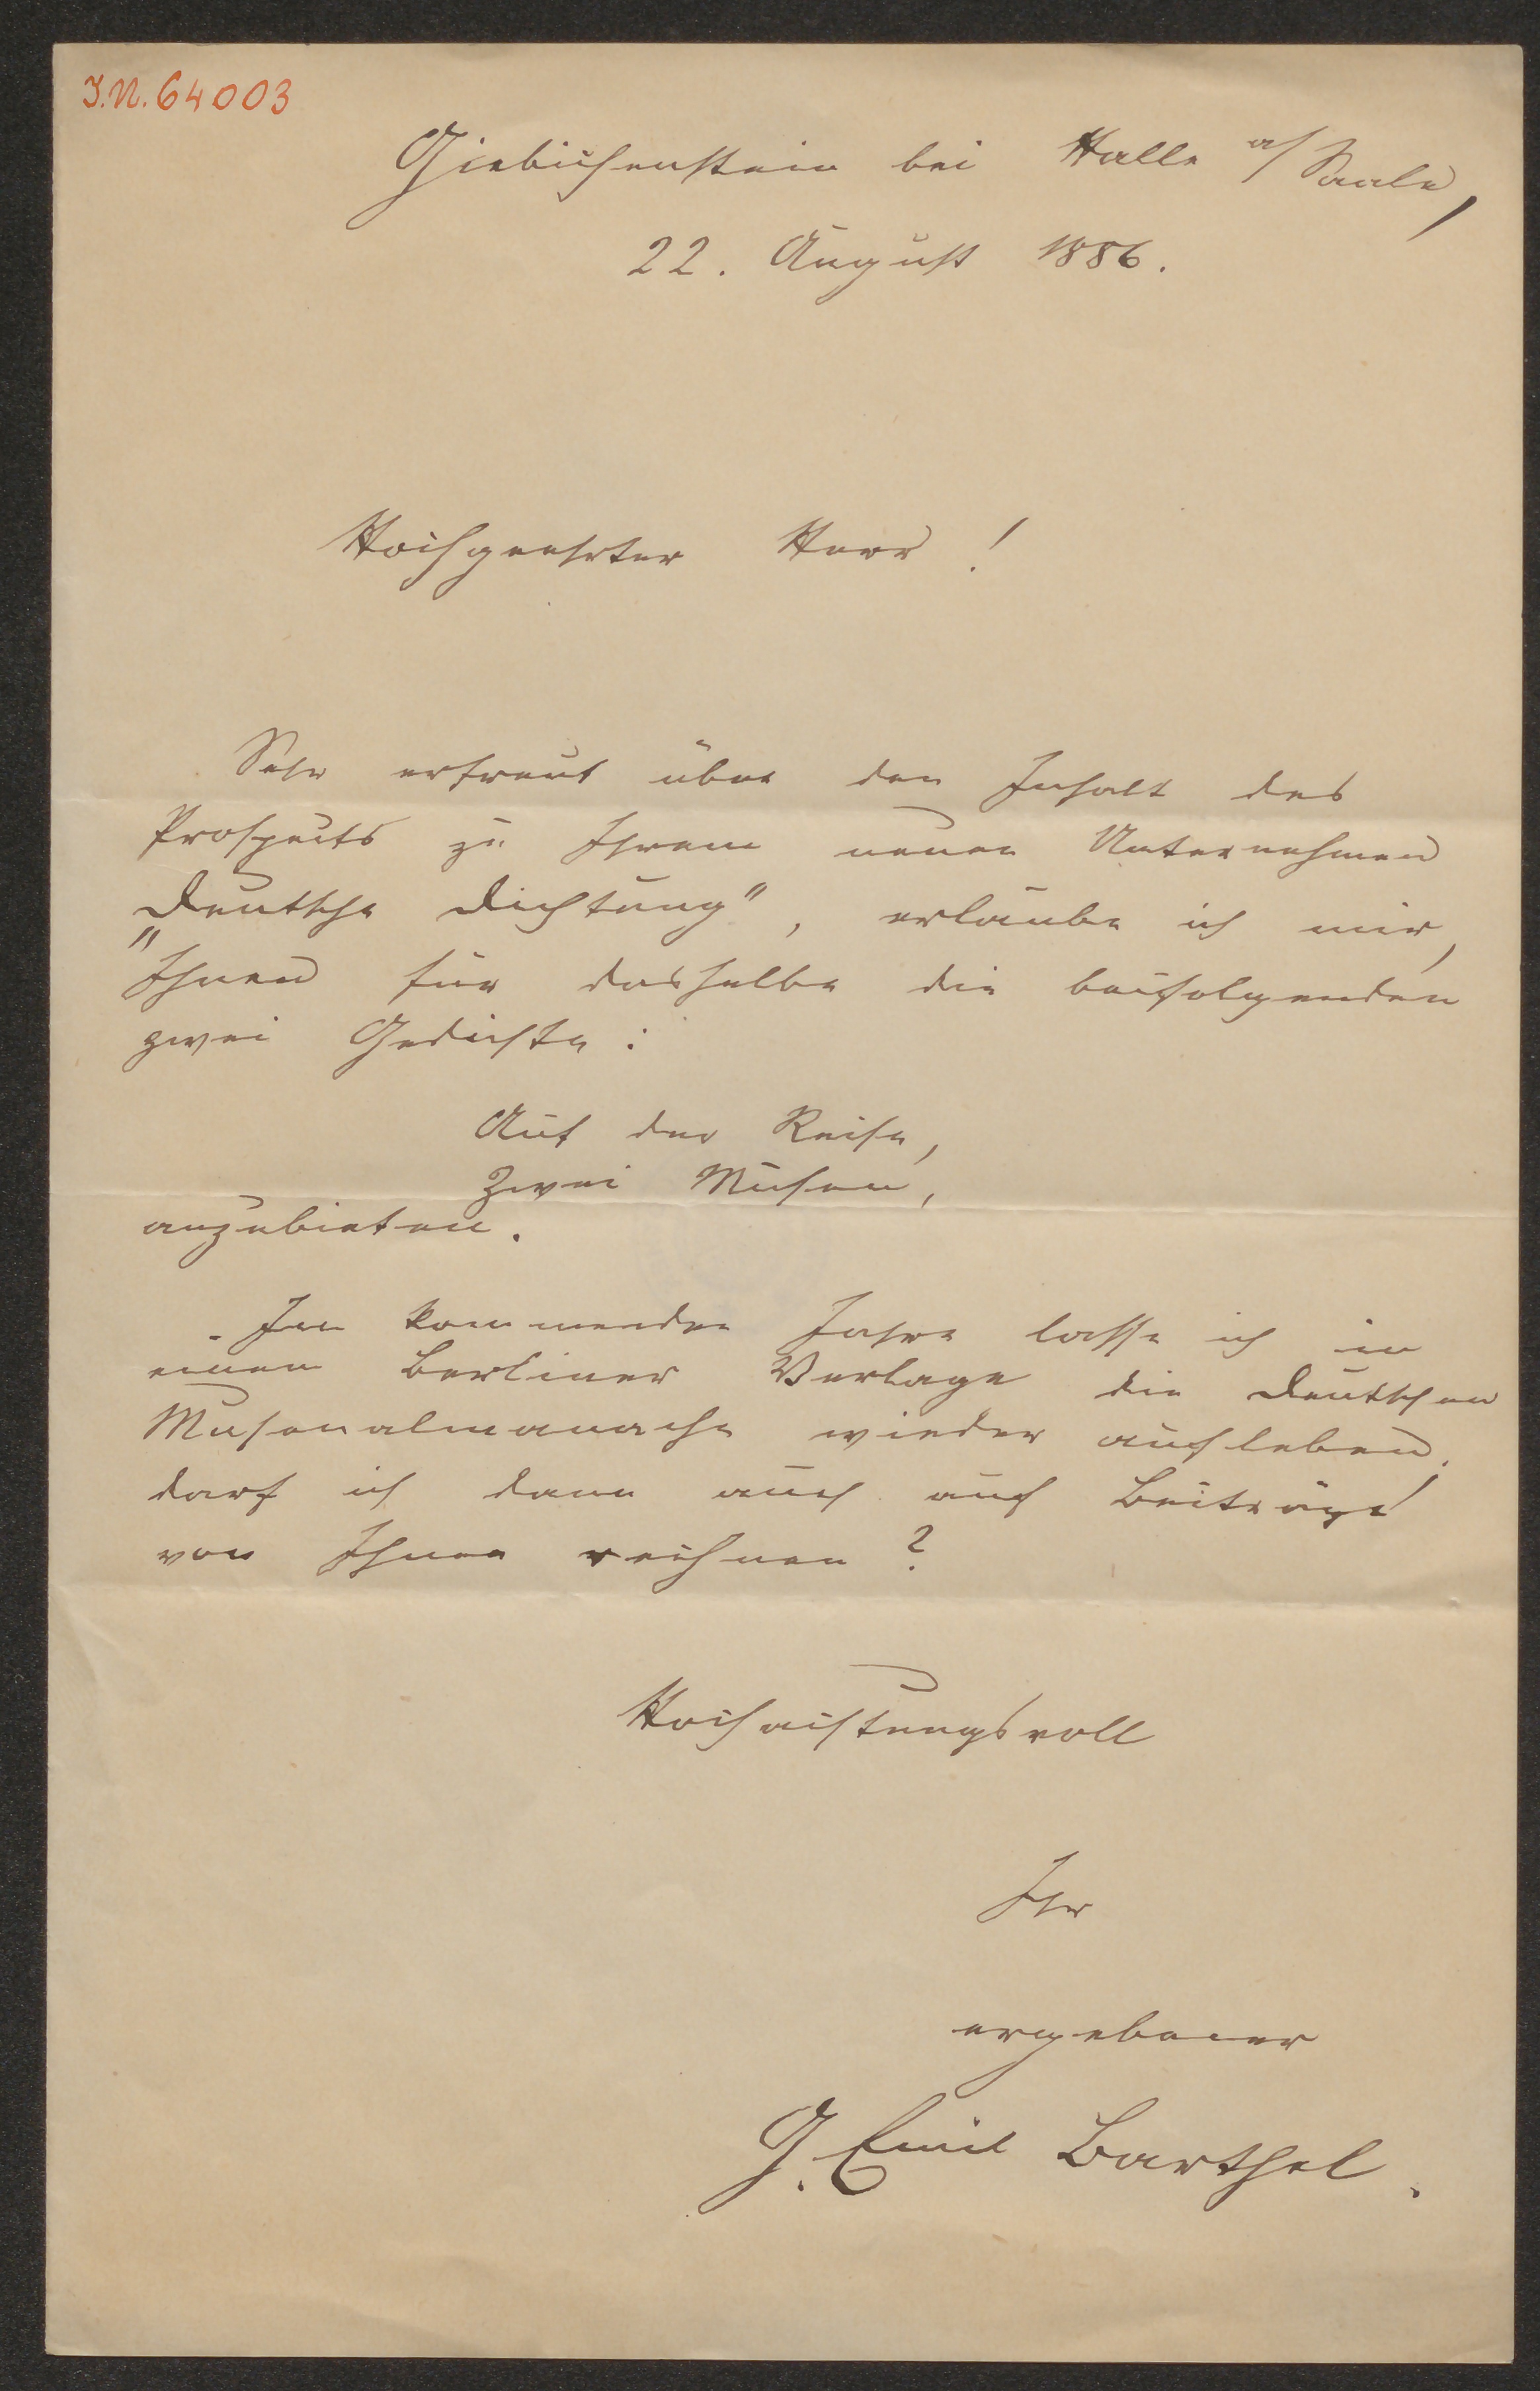 I.N. 64003
Giebichenstein bei Halle a/ Saale,
22. August 1886.
Hochgeehrter Herr!
Sehr erfreut über den Inhalt des
Prospects zu Ihrem neuen Unternehmen
„Deutsche Dichtung", erlaube ich mir,
Ihnen für dasselbe die beifolgenden
zwei Gedichte:
Auf der Reise,
Zwei Musen,
anzubieten.
Im kommenden Jahre lasse ich in
einem Berliner Verlage die Deutschen
Musenalmanache wieder aufleben.
darf ich dann auch auf Beiträge
von Ihnen rechnen?
Hochachtungsvoll
Ihr
ergebener
G. Emil Barthel.